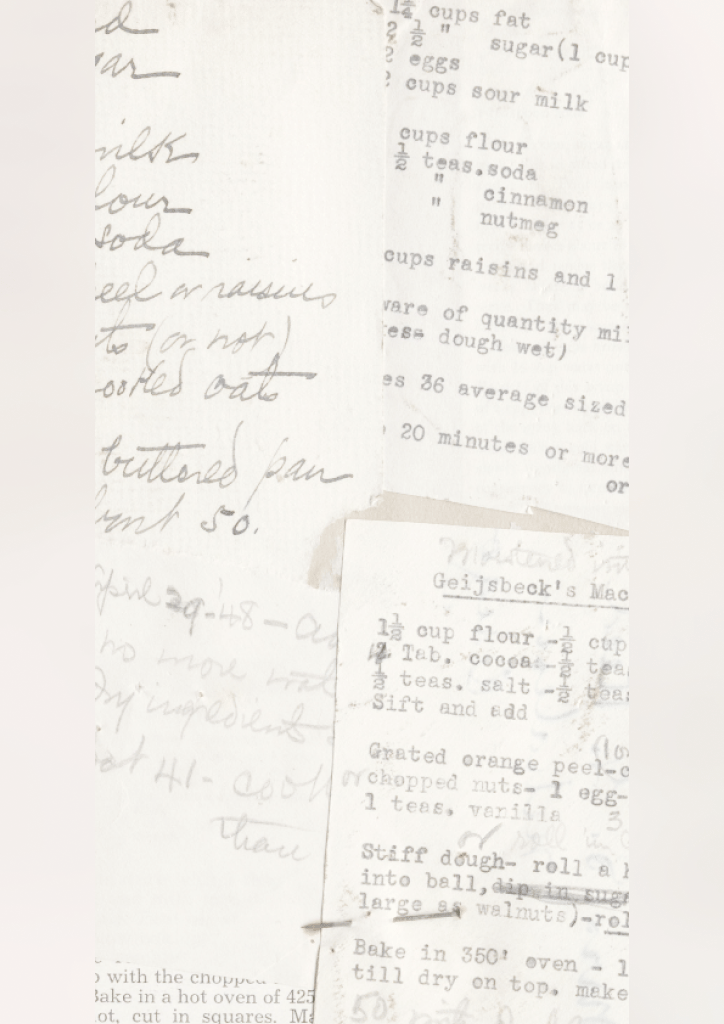 milk
flour
soda
peel or raisins
(or not)
oats
buttered pan
50.
1¼ cups fat
2 ½ " sugar(1 cup
2 eggs
cups sour milk
cups flour
½ teas.soda
" cinnamon
" nutmeg
cups raisins and 1
ware of quantity mi
es- dough wet)
es 36 average sized
20 minutes or more
or
April 29-48-
no more
Dry ingredient
41- cook
than
Moistened
Geijsbeck's Mac
1½ cup flour -½ cup
Tab. cocoa -½ teas
½ teas. salt -½ teas
Sift and add
Grated orange peel-c
or chopped nuts- 1 egg-
1 teas. vanilla
3
or roll in
Stiff dough- roll a
into ball,dip in suga
large as walnuts)-rol
Bake in 350° oven - 1
till dry on top. make
50.
with the chopped
Bake in a hot oven of 425
ot, cut in squares. Ma